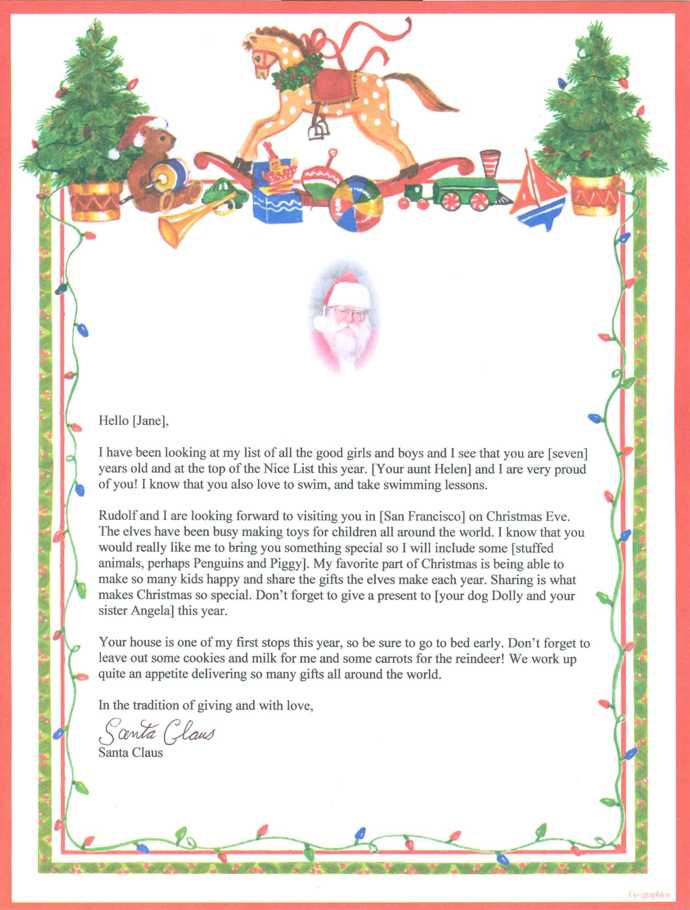 Hello [Jane],
I have been looking at my list of all the good girls and boys and I see that you are [seven]
years old and at the top of the Nice List this year. [Your aunt Helen] and I are very proud
of you! I know that you also love to swim, and take swimming lessons.
Rudolf and I are looking forward to visiting you in [San Francisco] on Christmas Eve.
The elves have been busy making toys for children all around the world. I know that you
would really like me to bring you something special so I will include some [stuffed
animals, perhaps Penguins and Piggy]. My favorite part of Christmas is being able to
make so many kids happy and share the gifts the elves make each year. Sharing is what
makes Christmas so special. Don't forget to give a present to [your dog Dolly and your
sister Angela] this year.
Your house is one of my first stops this year, so be sure to go to bed early. Don't forget to
leave out some cookies and milk for me and some carrots for the reindeer! We work up
quite an appetite delivering so many gifts all around the world.
In the tradition of giving and with love,
Santa Claus
Santa Claus